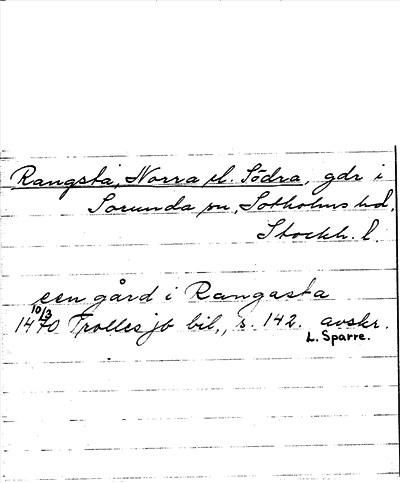 Rangsta, Norra el. Södra, gdr i
Sorunda sn, Sotholms hd,
Stockh. l.
een gård i Rangasta
10/3
1470 Trolles jb bil., s. 142. avskr.
L. Sparre.